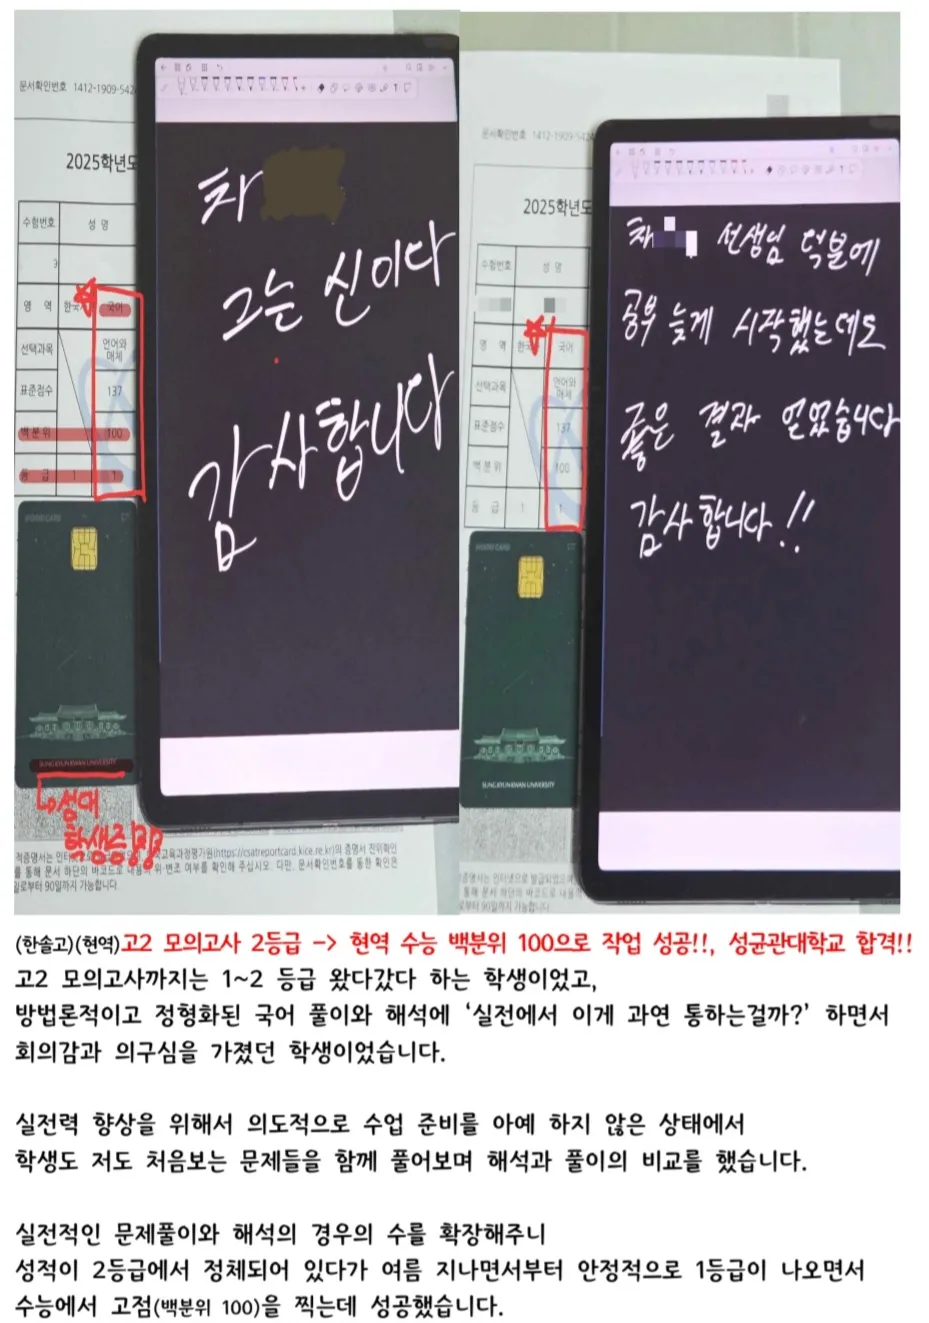 문서확인번호 1412-1909-542
2025학년도
수험번호 성 명
9
영 역 한국사 국어
선택과목 언어와 매체
표준점수 137
백분위 100
등 급 1 1
SUNG KYUN KWAN UNIVERSITY
↳성대
학생증
차
그는 신이다
감사합니다
문서확인번호 1412-1909-542
2025학년도
수험번호 성 명
영 역 국어
선택과목 언어와 매체
표준점수 137
백분위 100
등 급 1 1
SUNG KYUN KWAN UNIVERSITY
차 선생님 덕분에
공부 늦게 시작했는데도
좋은 결과 얻었습니다
감사합니다!!
교육과정평가원(https://csatreportcard.kice.re.kr)의 증명서 진위확인
를 통해 문서 하단의 바코드로 위·변조 여부를 확인해 주십시오. 다만, 문서확인번호를 통한 확인은
일로부터 90일까지 가능합니다.
를 통해 문서 하단의 바코드로
로부터 90일까지 가능합니다.
(한솔고)(현역)고2 모의고사 2등급 -> 현역 수능 백분위 100으로 작업 성공!!, 성균관대학교 합격!!
고2 모의고사까지는 1~2 등급 왔다갔다 하는 학생이었고,
방법론적이고 정형화된 국어 풀이와 해석에 ‘실전에서 이게 과연 통하는걸까?’ 하면서
회의감과 의구심을 가졌던 학생이었습니다.
실전력 향상을 위해서 의도적으로 수업 준비를 아예 하지 않은 상태에서
학생도 저도 처음보는 문제들을 함께 풀어보며 해석과 풀이의 비교를 했습니다.
실전적인 문제풀이와 해석의 경우의 수를 확장해주니
성적이 2등급에서 정체되어 있다가 여름 지나면서부터 안정적으로 1등급이 나오면서
수능에서 고점(백분위 100)을 찍는데 성공했습니다.